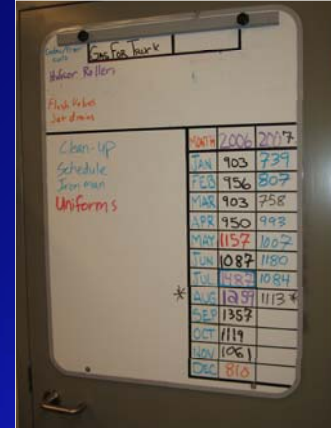 Gas For Truck
Rollen
Flush Valves
Jar drains
Clean-up
Schedule
Iron man
Uniforms
MONTH 2006 2007
JAN 903 739
FEB 956 807
MAR 903 758
APR 950 993
MAY 1157 1007
JUN 1087 1180
JUL 1487 1084
* AUG 1259 1113 *
SEP 1357
OCT 1119
NOV 1061
DEC 810